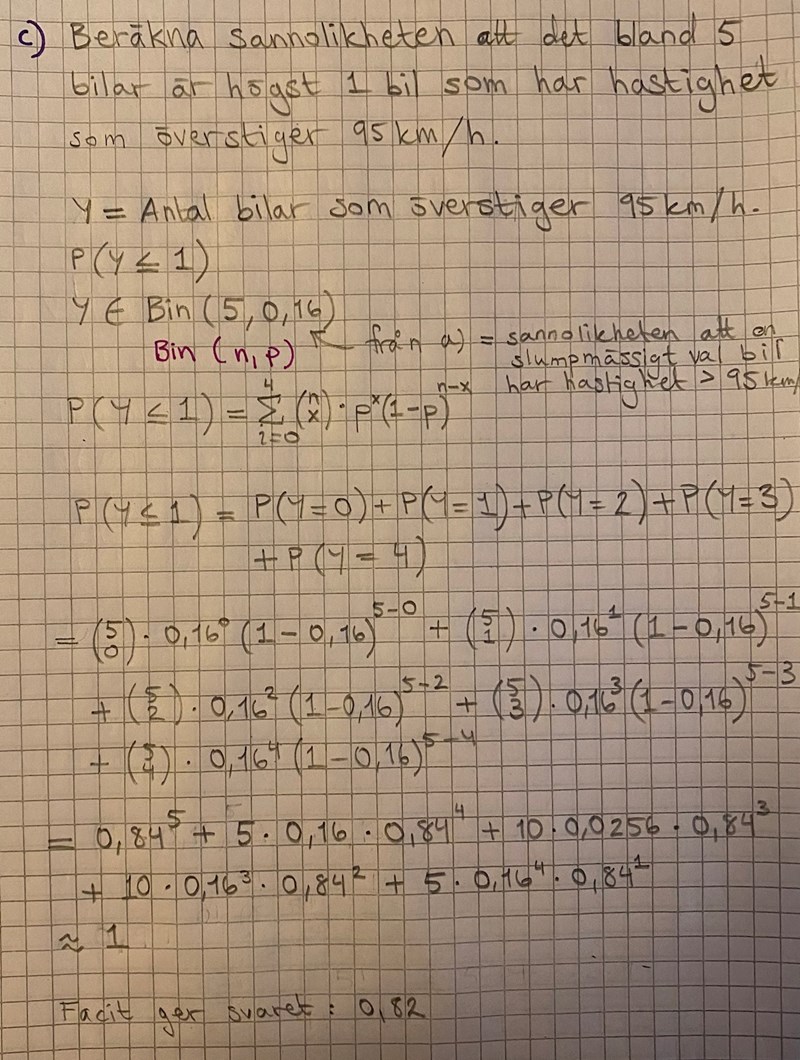 c) Beräkna sannolikheten att det bland 5
bilar är högst 1 bil som har hastighet
som överstiger 95 km/h.
Y = Antal bilar som överstiger 95 km/h.
P(Y ≤ 1)
Y ∈ Bin (5, 0,16)
Bin (n, p) ↖ från a) = sannolikheten att en
slumpmässigt val bil
har hastighet > 95 km/
P(Y ≤ 1) = ∑_{i=0}^{4} (n x) · p^x (1-p)^{n-x}
P(Y ≤ 1) = P(Y=0) + P(Y=1) + P(Y=2) + P(Y=3)
+ P(Y = 4)
= (5 0) · 0,16^0 (1 - 0,16)^{5-0} + (5 1) · 0,16^1 (1 - 0,16)^{5-1}
+ (5 2) · 0,16^2 (1 - 0,16)^{5-2} + (5 3) · 0,16^3 (1 - 0,16)^{5-3}
+ (5 4) · 0,16^4 (1 - 0,16)^{5-4}
= 0,84^5 + 5 · 0,16 · 0,84^4 + 10 · 0,0256 · 0,84^3
+ 10 · 0,16^3 · 0,84^2 + 5 · 0,16^4 · 0,84^1
≈ 1
Facit ger svaret : 0,82